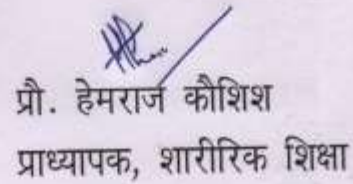 प्रौ. हेमराज कौशिश
प्राध्यापक, शारीरिक शिक्षा